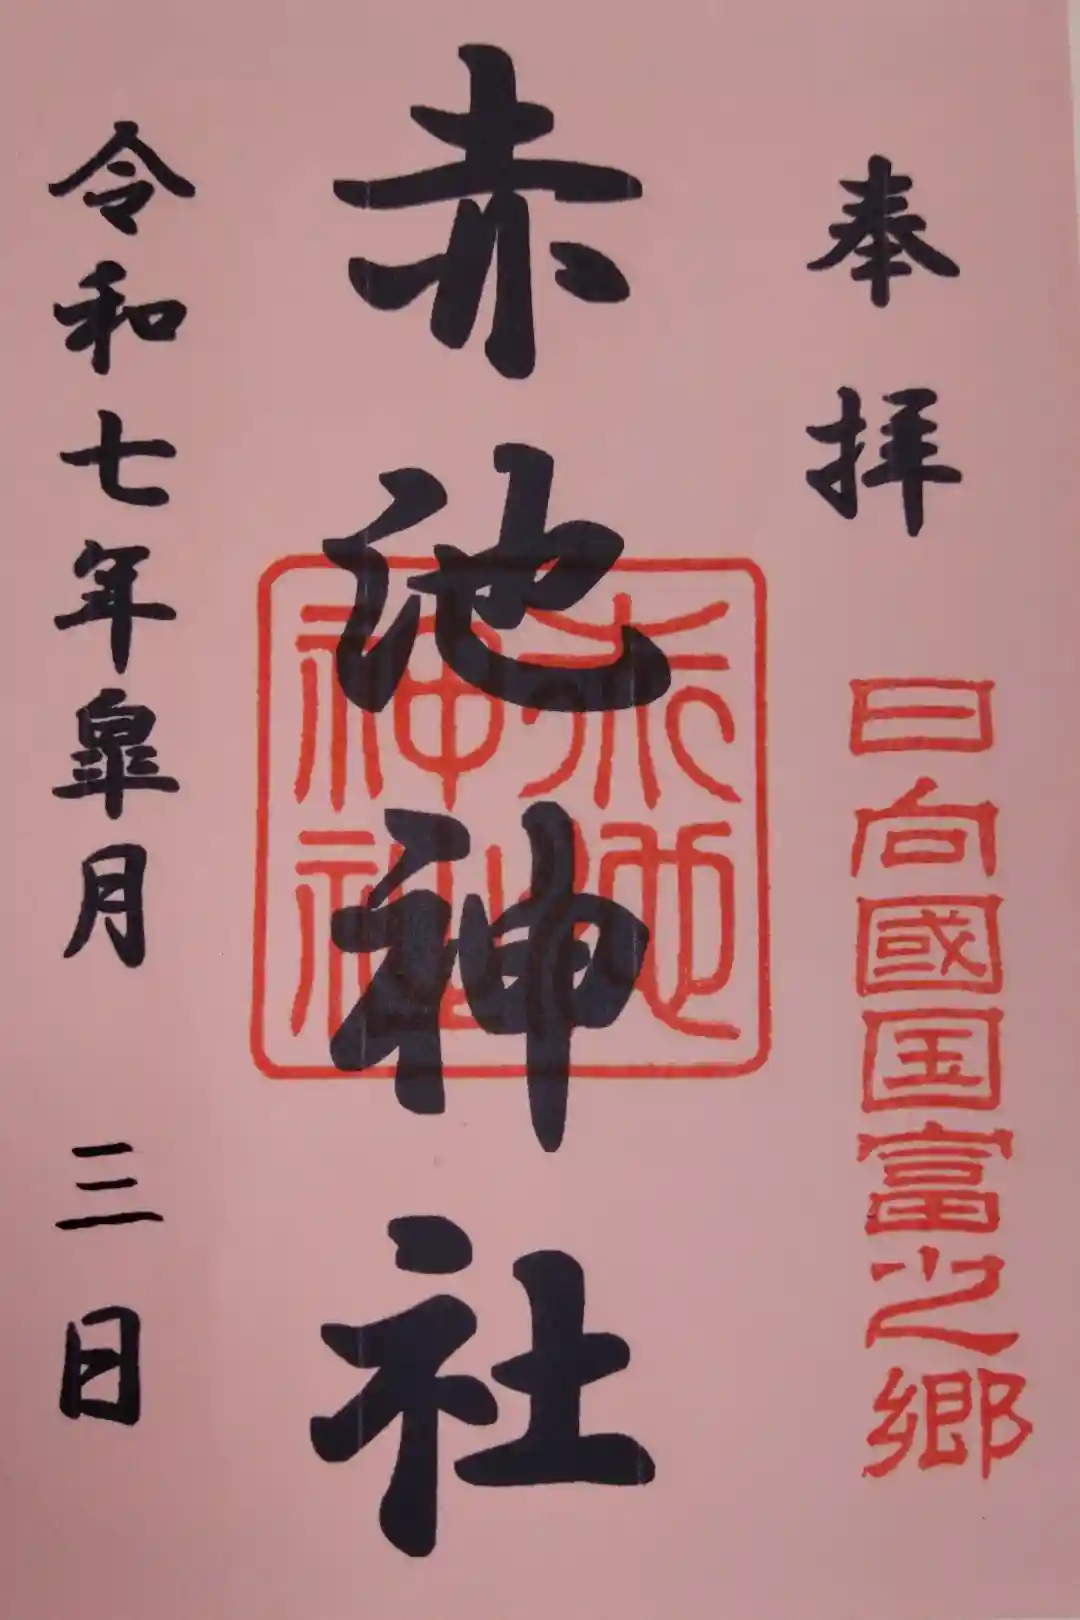 奉拝
日向國国富之郷
赤池神社
赤池
神社
令和七年皐月 三日